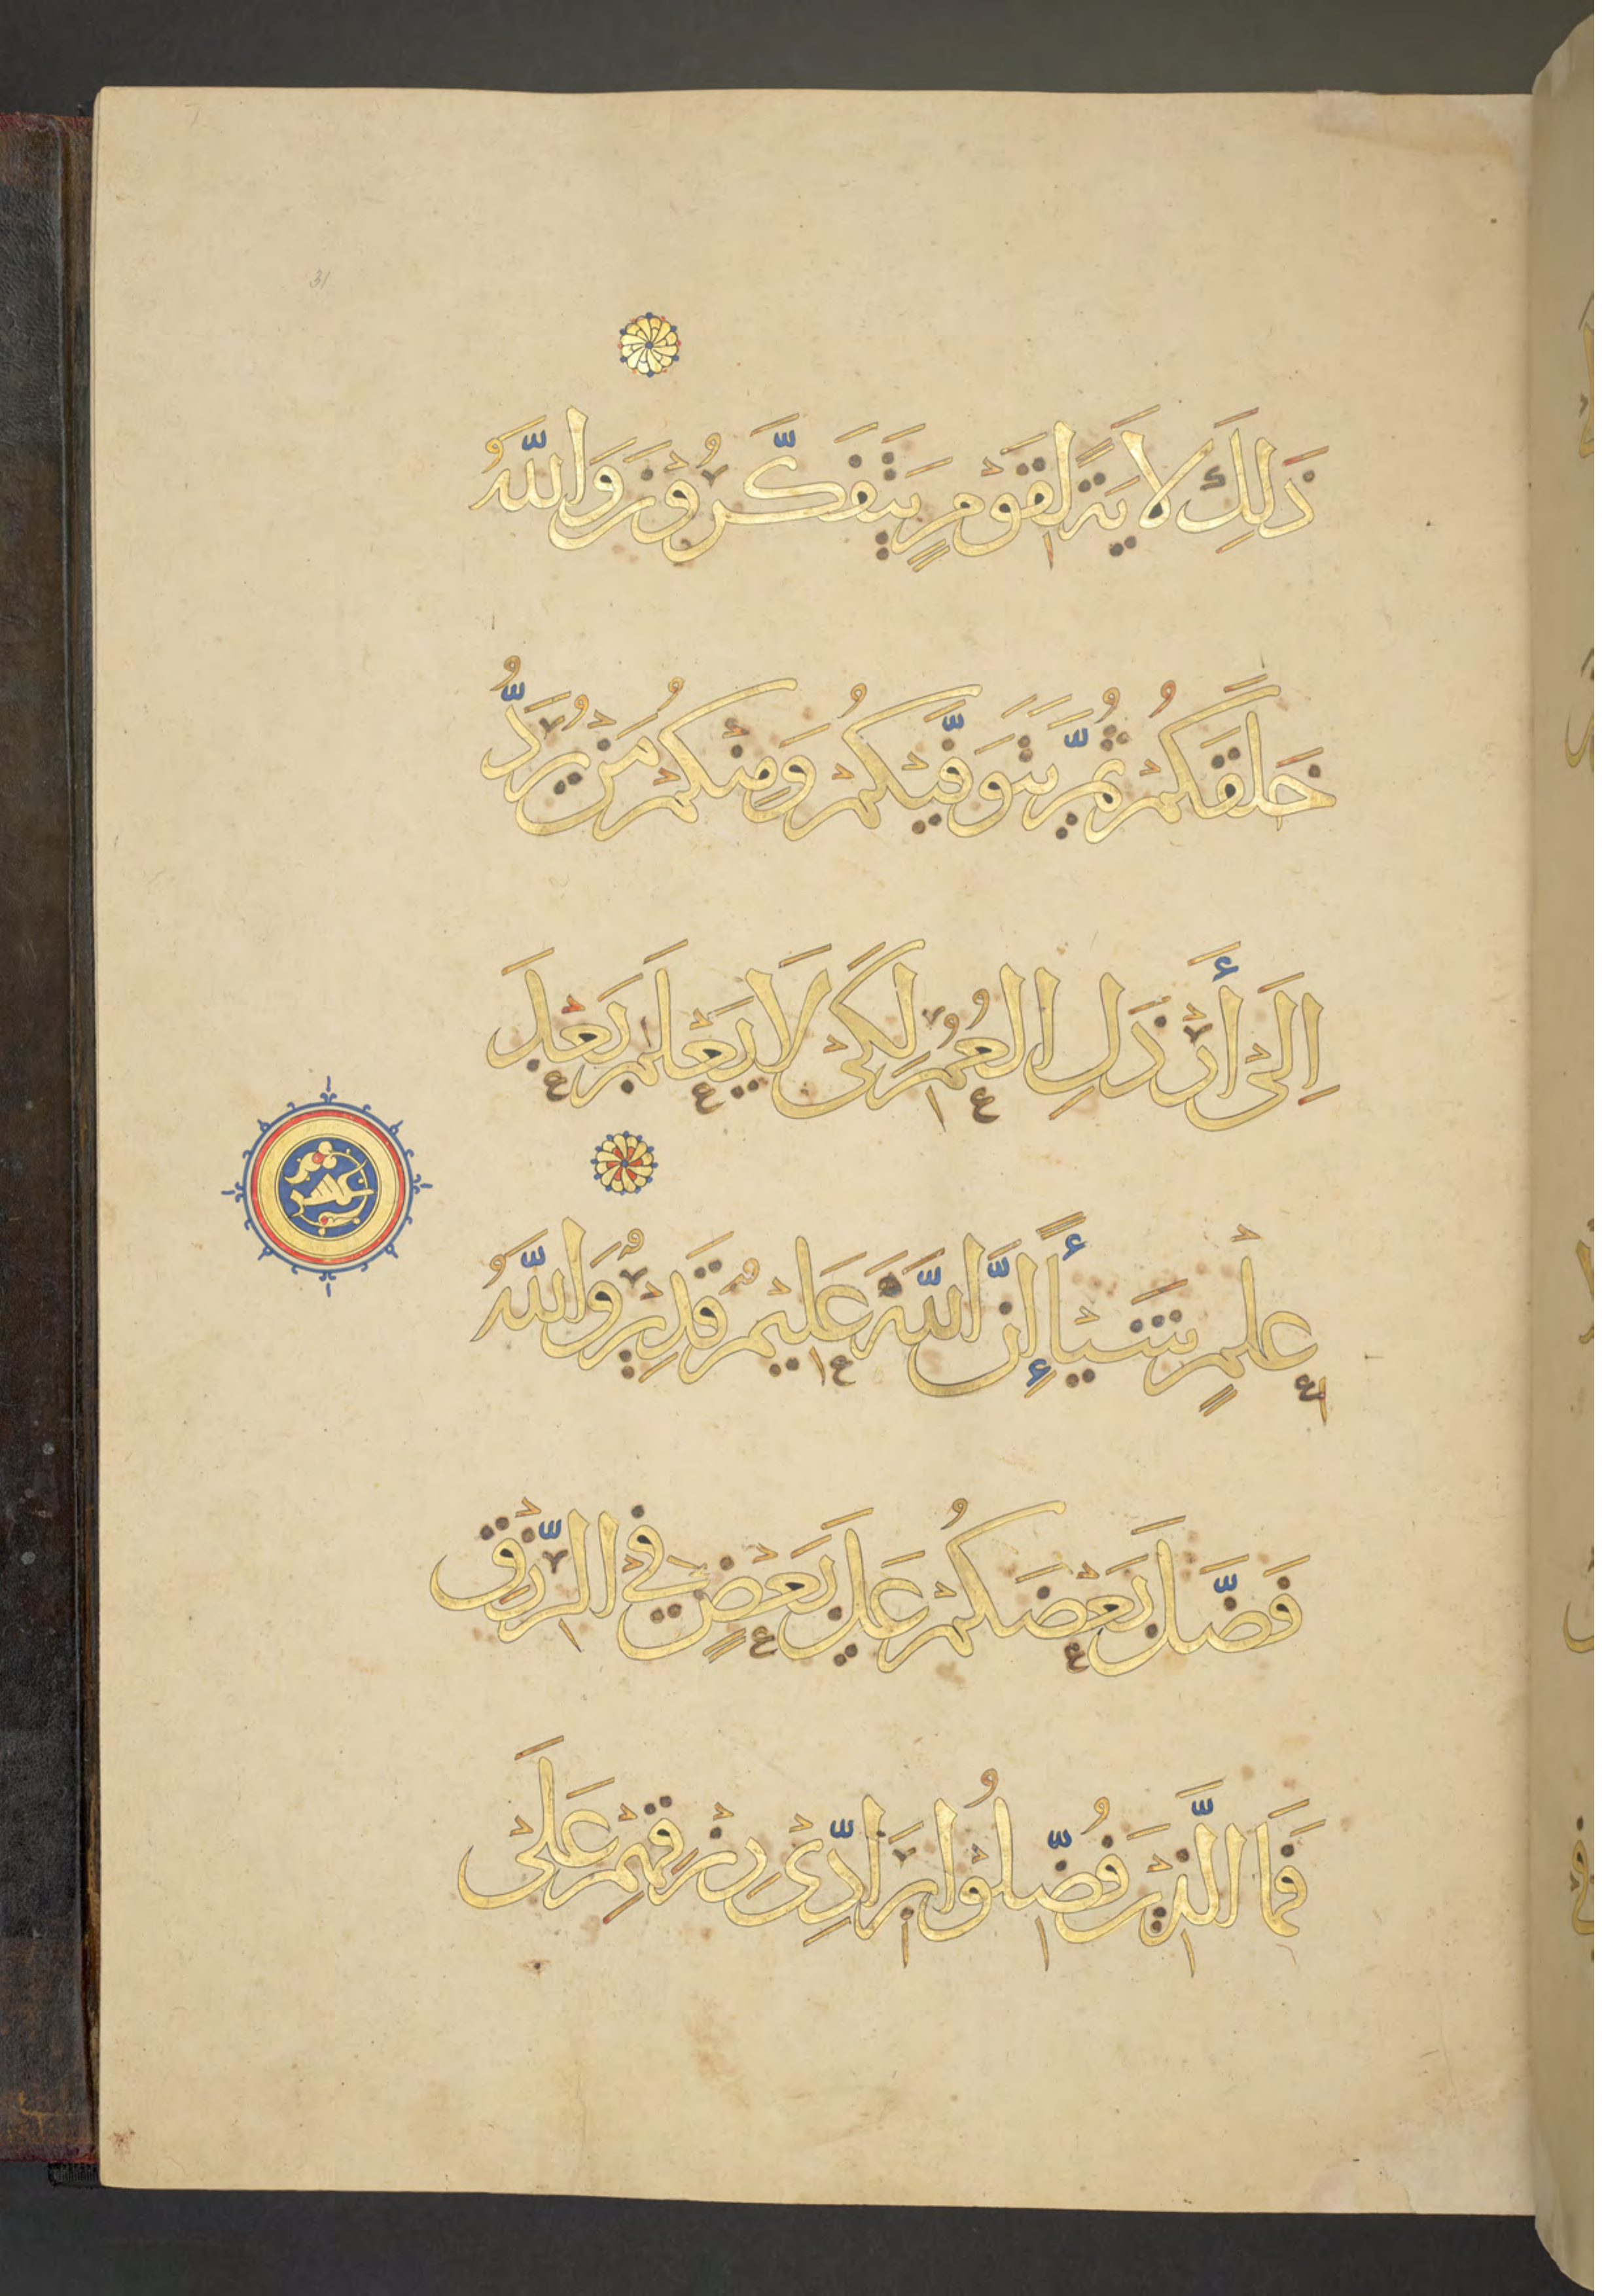 ذَلِكَ لَايَةً لِقَوْمٍ يَتَفَكَّرُوْنَ وَاللَّهُ
خَلَقَكُمْ ثُمَّ يَتَوَفَّيٰكُمْ وَمِنْكُمْ مَنْ يُرَدُّ
اِلَىْ أَرْذَلِ الْعُمُرِ لِكَىْ لَا يَعْلَمَ بَعْدَ
عِلْمٍ شَيْـًٔا إِنَّ اللَّهَ عَلِيْمٌ قَدِيْرٌ وَاللَّهُ
فَضَّلَ بَعْضَكُمْ عَلَى بَعْضٍ فِي الرِّزْقِ
فَمَا الَّذِيْنَ فُضِّلُوْا بِرَادِّىْ رِزْقِهِمْ عَلَىْ
عشر
31